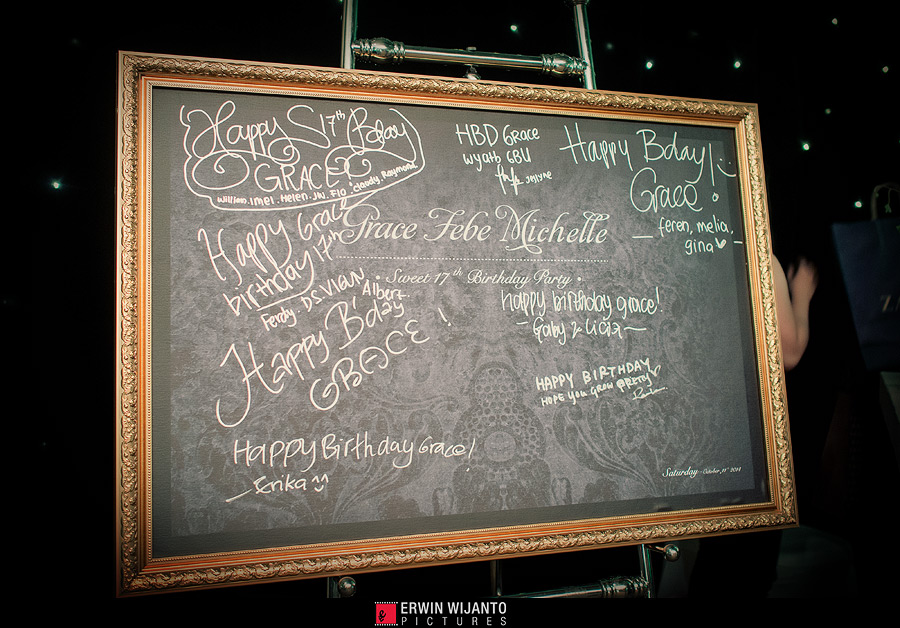 Happy 17th Bday
GRACE
William. Imel. Helen. JW. Flo. Claudy. Raymond
HBD Grace
Wyatb GBU
Jesslyne
Happy Bday!
Grace :)
— feren, melia, —
gina
Grace Febe Michelle
Sweet 17th Birthday Party
Happy Grace
birthday 17th
Ferdy. DS. Vian. Albert.
happy birthday grace!
- Gaby & Licia -
Happy B'day
GRACE !
HAPPY BIRTHDAY
HOPE YOU GROW
Happy Birthday Grace!
Erika
Saturday - October, 2014
ERWIN WIJANTO
PICTURES